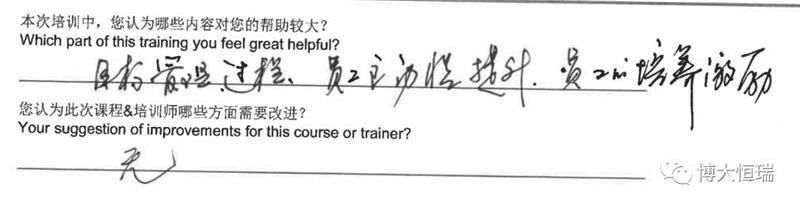 本次培训中，您认为哪些内容对您的帮助较大？
Which part of this training you feel great helpful?
目标管理过程、员工主动性提升、员工的培养激励
您认为此次课程&培训师哪些方面需要改进？
Your suggestion of improvements for this course or trainer?
无
博大恒瑞